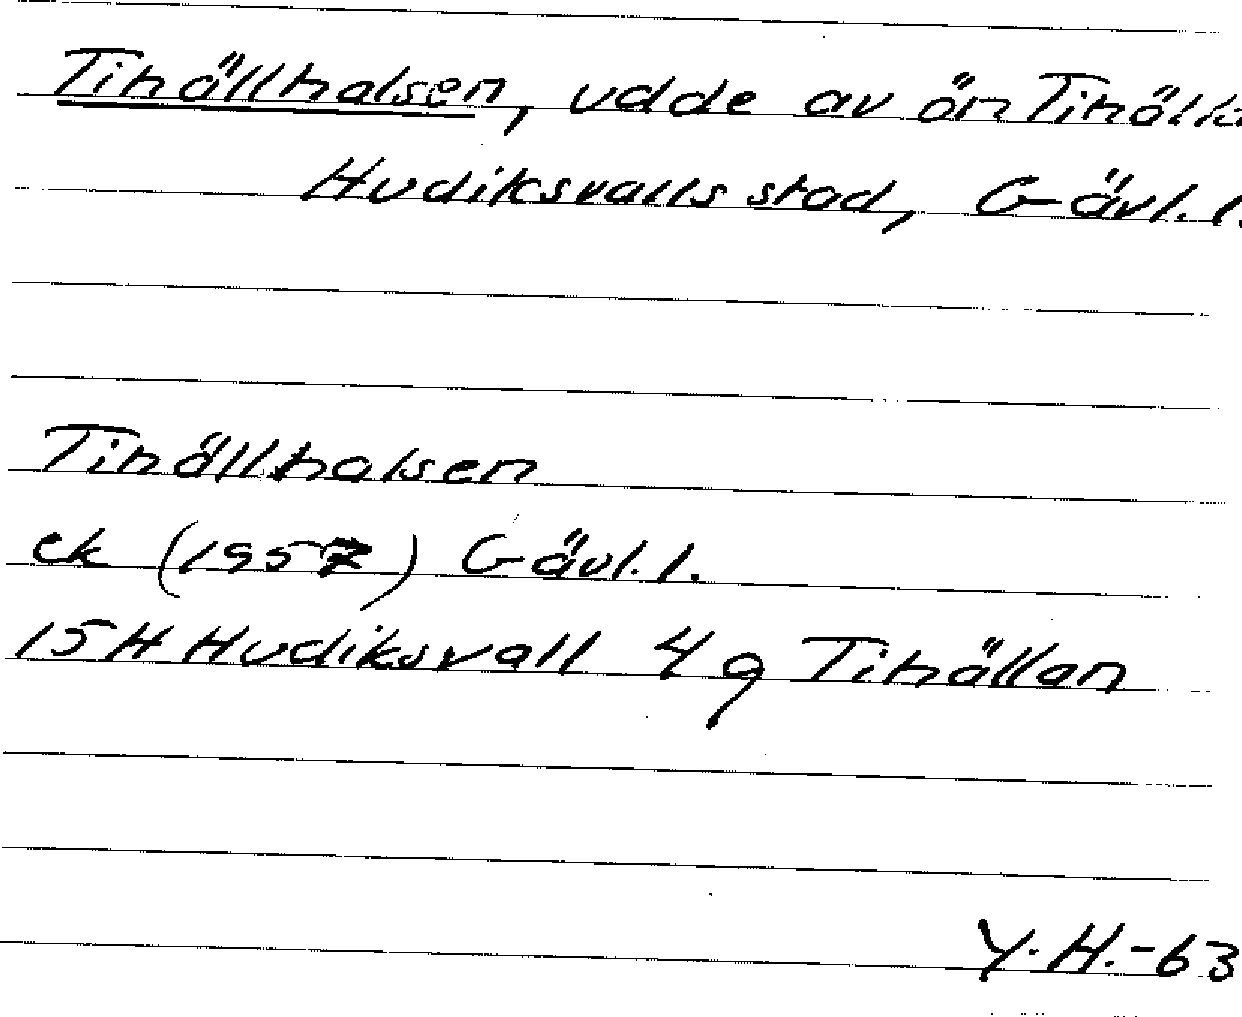 Tihällhalsen, udde av ön Tihälla
Hudiksvalls stad, Gävl. l.
Tihällhalsen
ek (1957) Gävl. l.
15H Hudiksvall 4g Tihällan
Y.H.-63